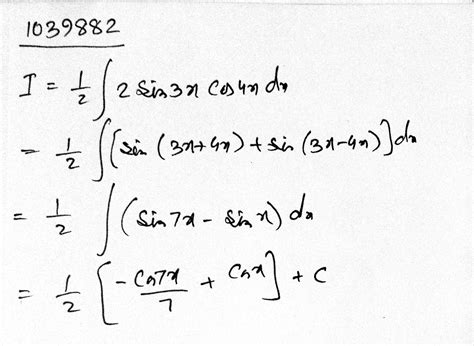 1039882
I = 1/2 ∫ 2 Sin 3x Cos 4x dx
= 1/2 ∫ [Sin (3x+4x) + Sin (3x-4x)] dx
= 1/2 ∫ (Sin 7x - Sin x) dx
= 1/2 [-Cos 7x/7 + Cos x] + C